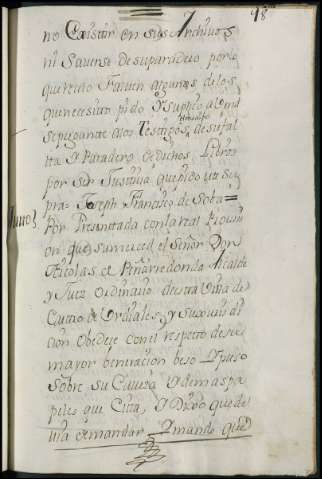 98
no Existir en sus Archivos
ni Saverse de su paradero por lo
que
que necesito pido Y Suplico a Vmd
se pregunte a los Testigos, de su fal
ta Y Paradero de dichos Libros
por ser Justicia que pido ut su
pra = Joseph Francisco de Soba =
Auto
Por Presentada con la real Provisi
on que su merced el Señor Don
Nicolas de Peñarredonda Alcalde
y Juez Ordinario de esta Villa de
Castro de Urdiales, y su Jurisdi
cion Obedece con el respecto de su
mayor beneracion beso Y puso
Sobre su Caveza Y demas pa
peles que Cita, Y Dixo que de
via de mandar Y mando que